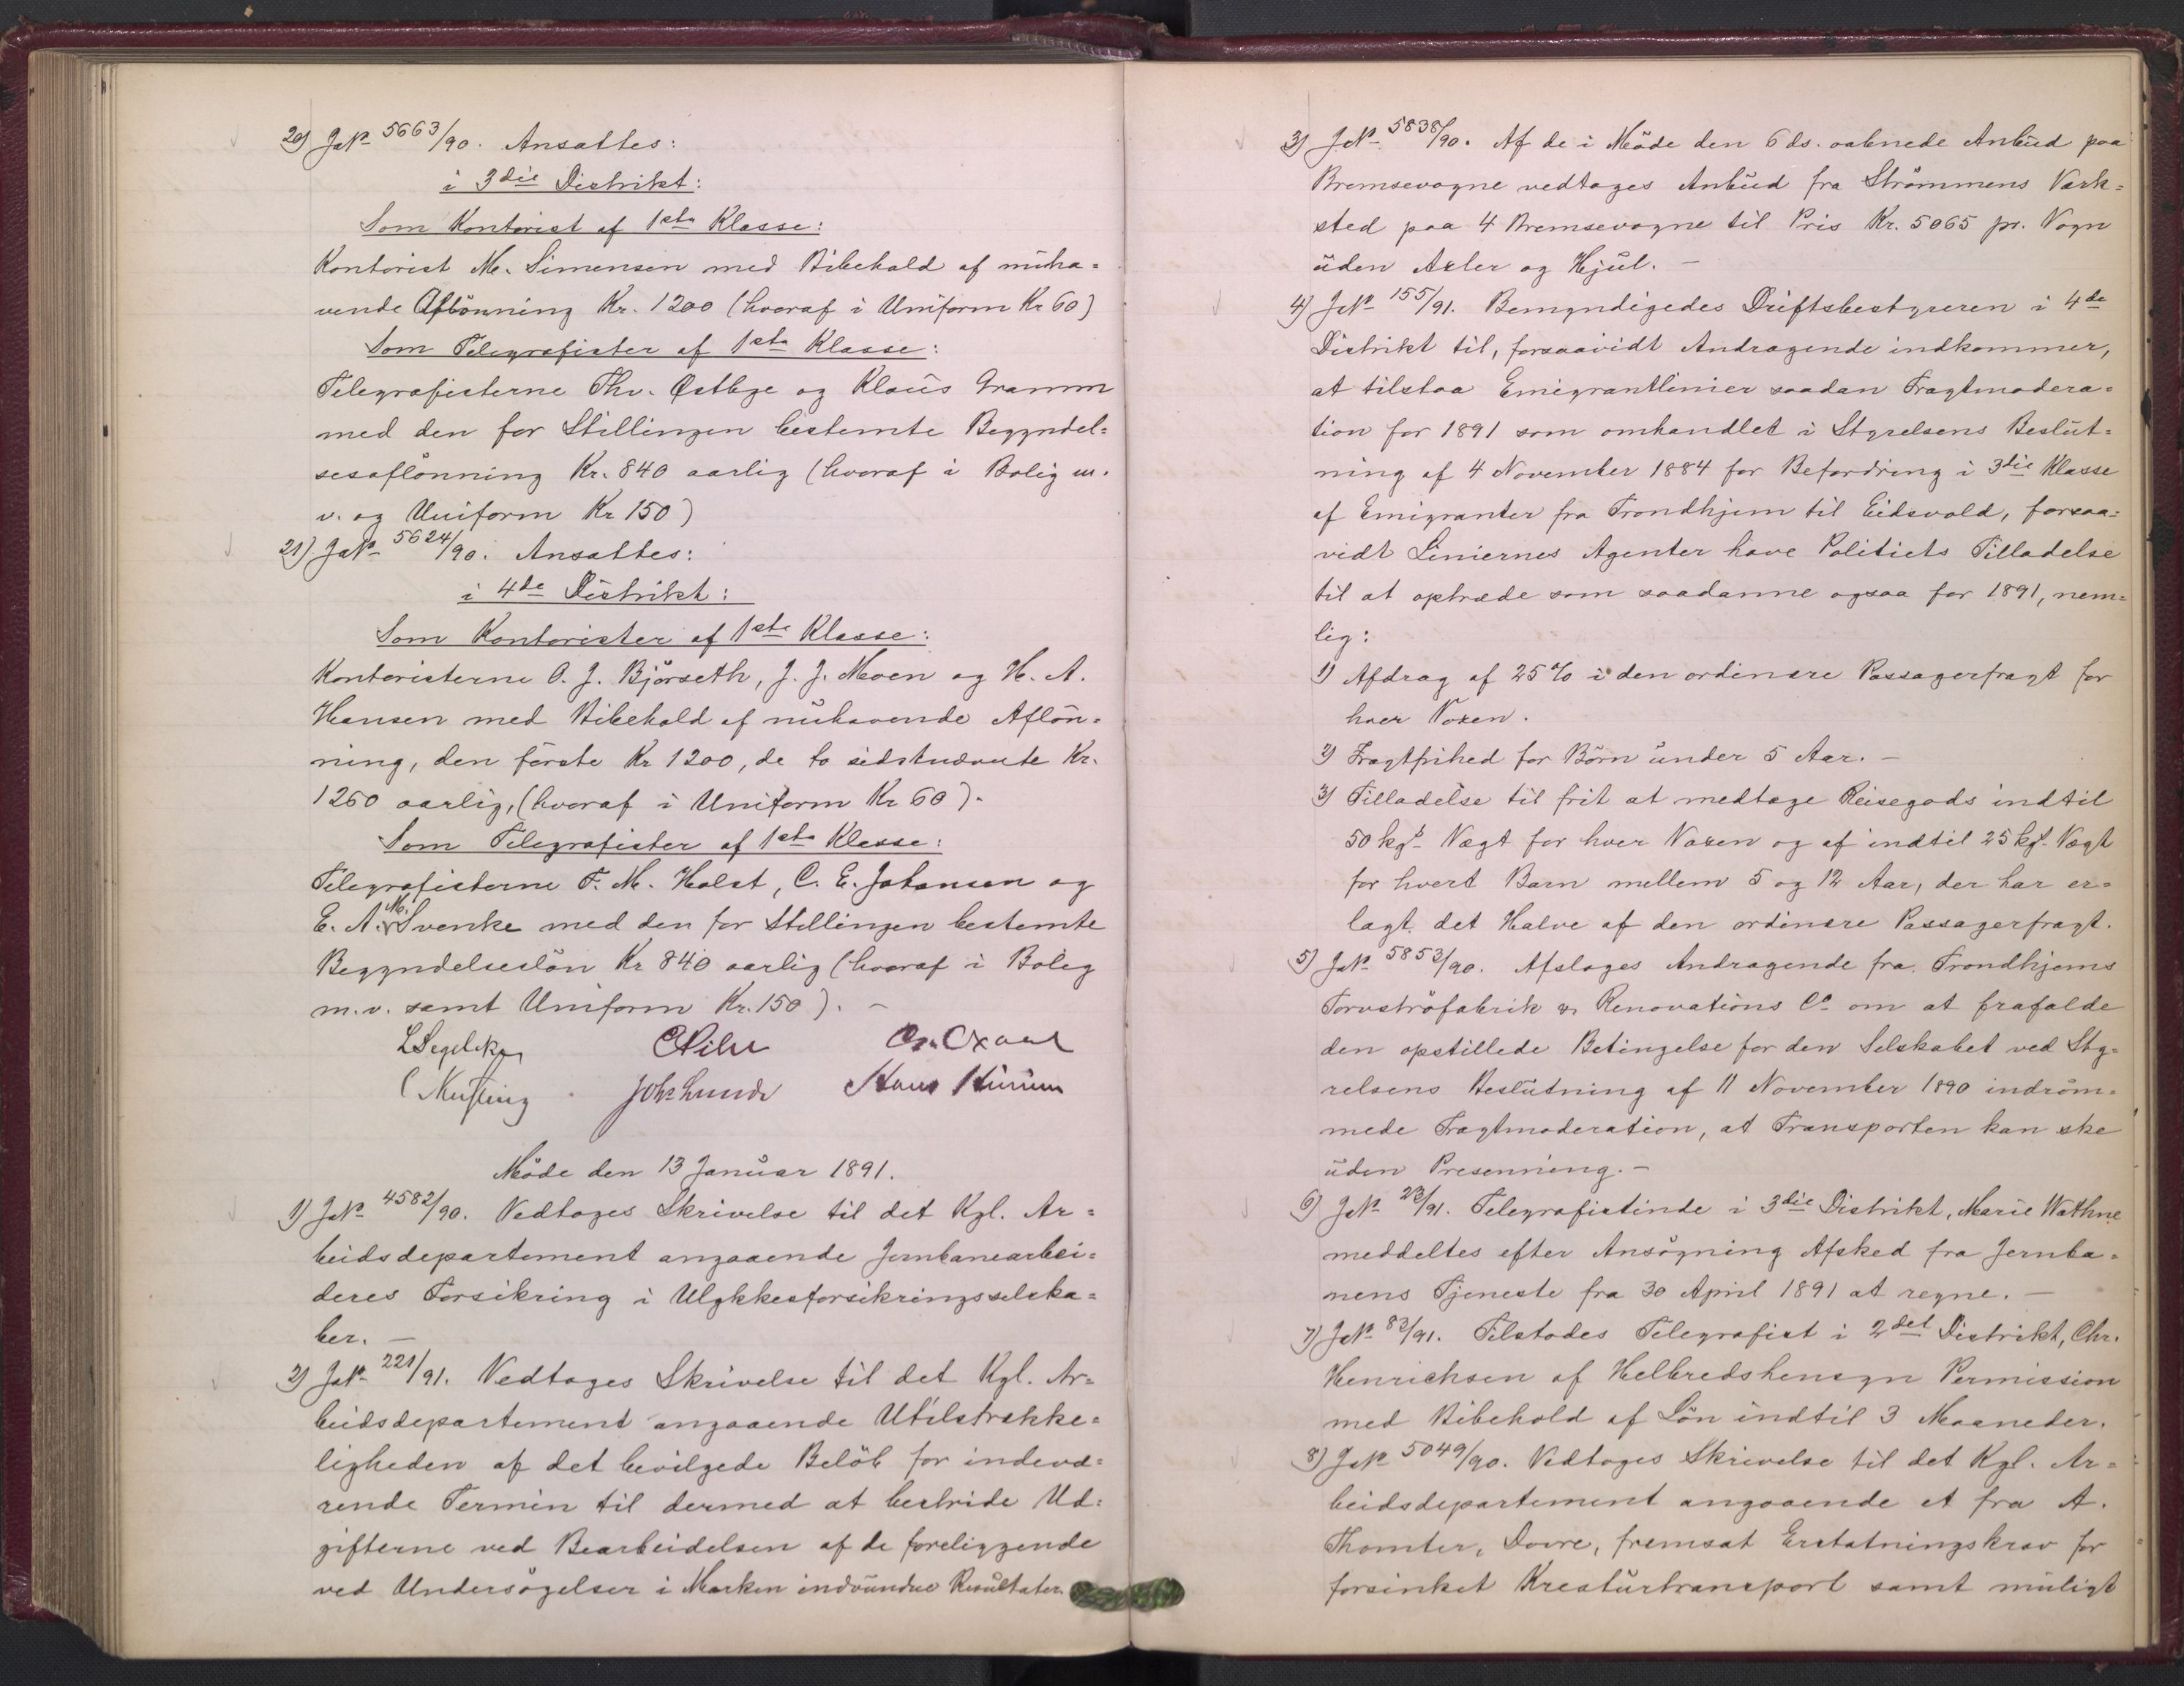 20) JNo 5663/90. Ansattes:
i 3die Distrikt:
Som Kontorist af 1ste Klasse:
Kontorist M. Simensen med Bibehold af nuha=
vende Aflönning Kr. 1200 (hvoraf i Uniform Kr 60)
Som Telegrafister af 1ste Klasse:
Telegrafisterne Thv. Østbye og Klaus Gramm
med den for Stillingen bestemte Begyndel=
sesaflönning Kr. 840 aarlig (hvoraf i Bolig m.
v. og Uniform Kr 150)
21) JNo 5624/90. Ansattes:
i 4de Distrikt:
Som Kontorister af 1ste Klasse:
Kontoristerne O. J. Björseth, J. J. Moen og H. A.
Hansen med Bibehold af nuhavende Aflön=
ning, den förste Kr 1200, de to sidstnævnte Kr.
1260 aarlig, (hvoraf i Uniform Kr 60).
Som Telegrafister af 1ste Klasse:
Telegrafisterne F. M. Holst, C. E. Johansen og
E. A. M. Svenke med den for Stillingen bestemte
Begyndelseslön Kr 840 aarlig (hvoraf i Bolig
m.v. samt Uniform Kr. 150). -
LSegelcke CPihl
Joh. Lunde Hans
Möde den 13 Januar 1891.
1) JNo 4582/90. Vedtoges Skrivelse til det Kgl. Ar=
beidsdepartement angaaende Jernbanearbei=
deres Forsikring i Ulykkesforsikringsselska=
ber. -
2) JNo 221/91. Vedtoges Skrivelse til det Kgl. Ar=
beidsdepartement angaaende Utilstrække=
ligheden af det bevilgede Belöb for indevæ=
rende Termin til dermed at bestride Ud=
gifterne ved Bearbeidelsen af de foreliggende
ved Undersögelser i Marken indvundne Resultater.
3) JNo 5838/90. Af de i Möde den 6 ds. aabnede Anbud paa
Bremsevogne vedtoges Anbud fra Strömmens Værk=
sted paa 4 Bremsevogne til Pris Kr. 5065 pr. Vogn
uden Axler og Hjul. -
4) JNo 155/91. Bemyndigedes Driftsbestyreren i 4de
Distrikt til, forsaavidt Andragende indkommer,
at tilstaa Emigrantlinier saadan Fragtmodera=
tion for 1891 som omhandlet i Styrelsens Beslut=
ning af 4 November 1884 for Befordring i 3die Klasse
af Emigranter fra Trondhjem til Eidsvold, forsaa=
vidt Liniernes Agenter have Politiets Tilladelse
til at optræde som saadanne ogsaa for 1891, nem=
lig:
1) Afdrag af 25 % i den ordinære Passagerfragt for
hver Voxen.
2) Fragtfrihed for Börn under 5 Aar. -
3) Tilladelse til frit at medtage Reisegods indtil
50 kgs Vægt for hver Voxen og af indtil 25 kgs Vægt
for hvert Barn mellem 5 og 12 Aar, der har er=
lagt det Halve af den ordinære Passagerfragt.
5) JNo 5853/90. Afsloges Andragende fra Trondhjems
Torvströfabrik & Renovations Co om at frafalde
den opstillede Betingelse for den Selskabet ved Sty=
relsens Beslutning af 11 November 1890 indröm=
mede Fragtmoderation, at Transporten kan ske
uden Presenning. -
6) JNo 23/91. Telegrafistinde i 3die Distrikt, Marie Wathne
meddeltes efter Ansögning Afsked fra Jernba=
nens Tjeneste fra 30 April 1891 at regne. -
7) JNo 83/91. Tilstodes Telegrafist i 2det Distrikt, Chr.
Henrichsen af Helbredshensyn Permission
med Bibehold af Lön indtil 3 Maaneder.
8) JNo 5049/90. Vedtoges Skrivelse til det Kgl. Ar=
beidsdepartement angaaende et fra A.
Thomter, Dovre, fremsat Erstatningskrav for
forsinket Kreaturtransport samt muligt